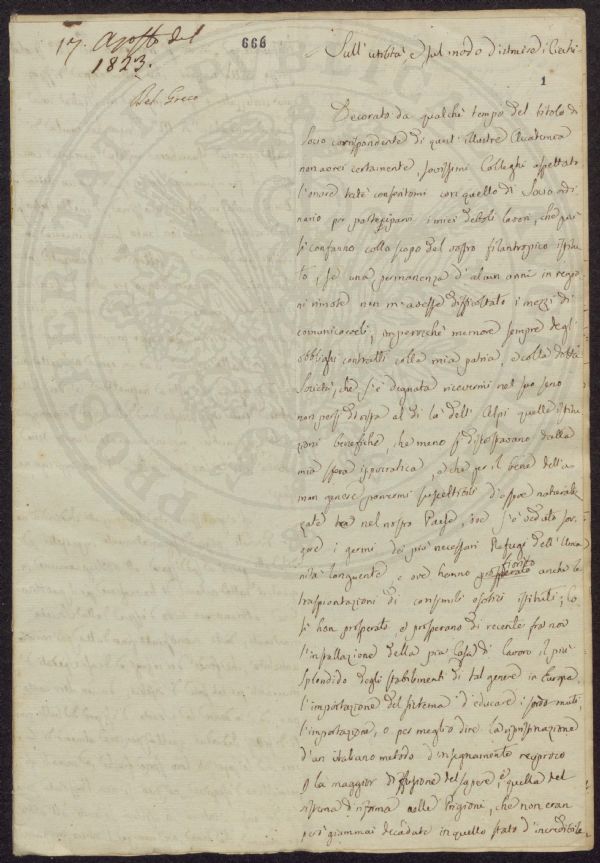 17. Agosto del
1823.
666
Del Greco
Sull' utilità e sul modo d'istruire i Ciechi
1
Decorato da qualche tempo del titolo di
Socio corrispondente di quest' illustre Accademia
non avrei certamente, Colleghi aspettato
l'onore testè confertomi con quello di Socio ordi
nario per parteciparvi i miei deboli lavori, che più
si confanno collo scopo del vostro filantropico istitu
to, se una permanenza d'alcuni anni in regio
ni rimote non m'avesse difficoltato i mezzi di
comunicarveli; imperocchè memore sempre degli
obblighi contratti colla mia patria, e colla dotta
Società, che s'è degnata ricevermi nel suo seno
non persi di vista al di là dell' Alpi quelle istitu
zioni benefiche, che meno si discostavano dalla
mia sfera ippocratica, e che per il bene dell'u
man genere parvermi suscettibili d'essere naturaliz
zate nel nostro Paese, ove s'è veduto sor
gere i germi dei più necessari Refugi dell' Uma
nità languente, e ove hanno fiorito anche le
traspiantazioni di consimili esotici istituti; co
sì han prosperato, e prosperano di recente fra noi
l'installazione della pia Casa di lavoro il più
splendido degli stabilimenti di tal genere in Europa
l'importazione del sistema d'educare i sordi muti
l'importazione, o per meglio dire
d'un italiano metodo d'insegnamento reciproco
la maggior diffusione del sapere, e quella del
sistema di riforma nelle Prigioni, che non eran
però giammai decadute in quello stato d'incredibile